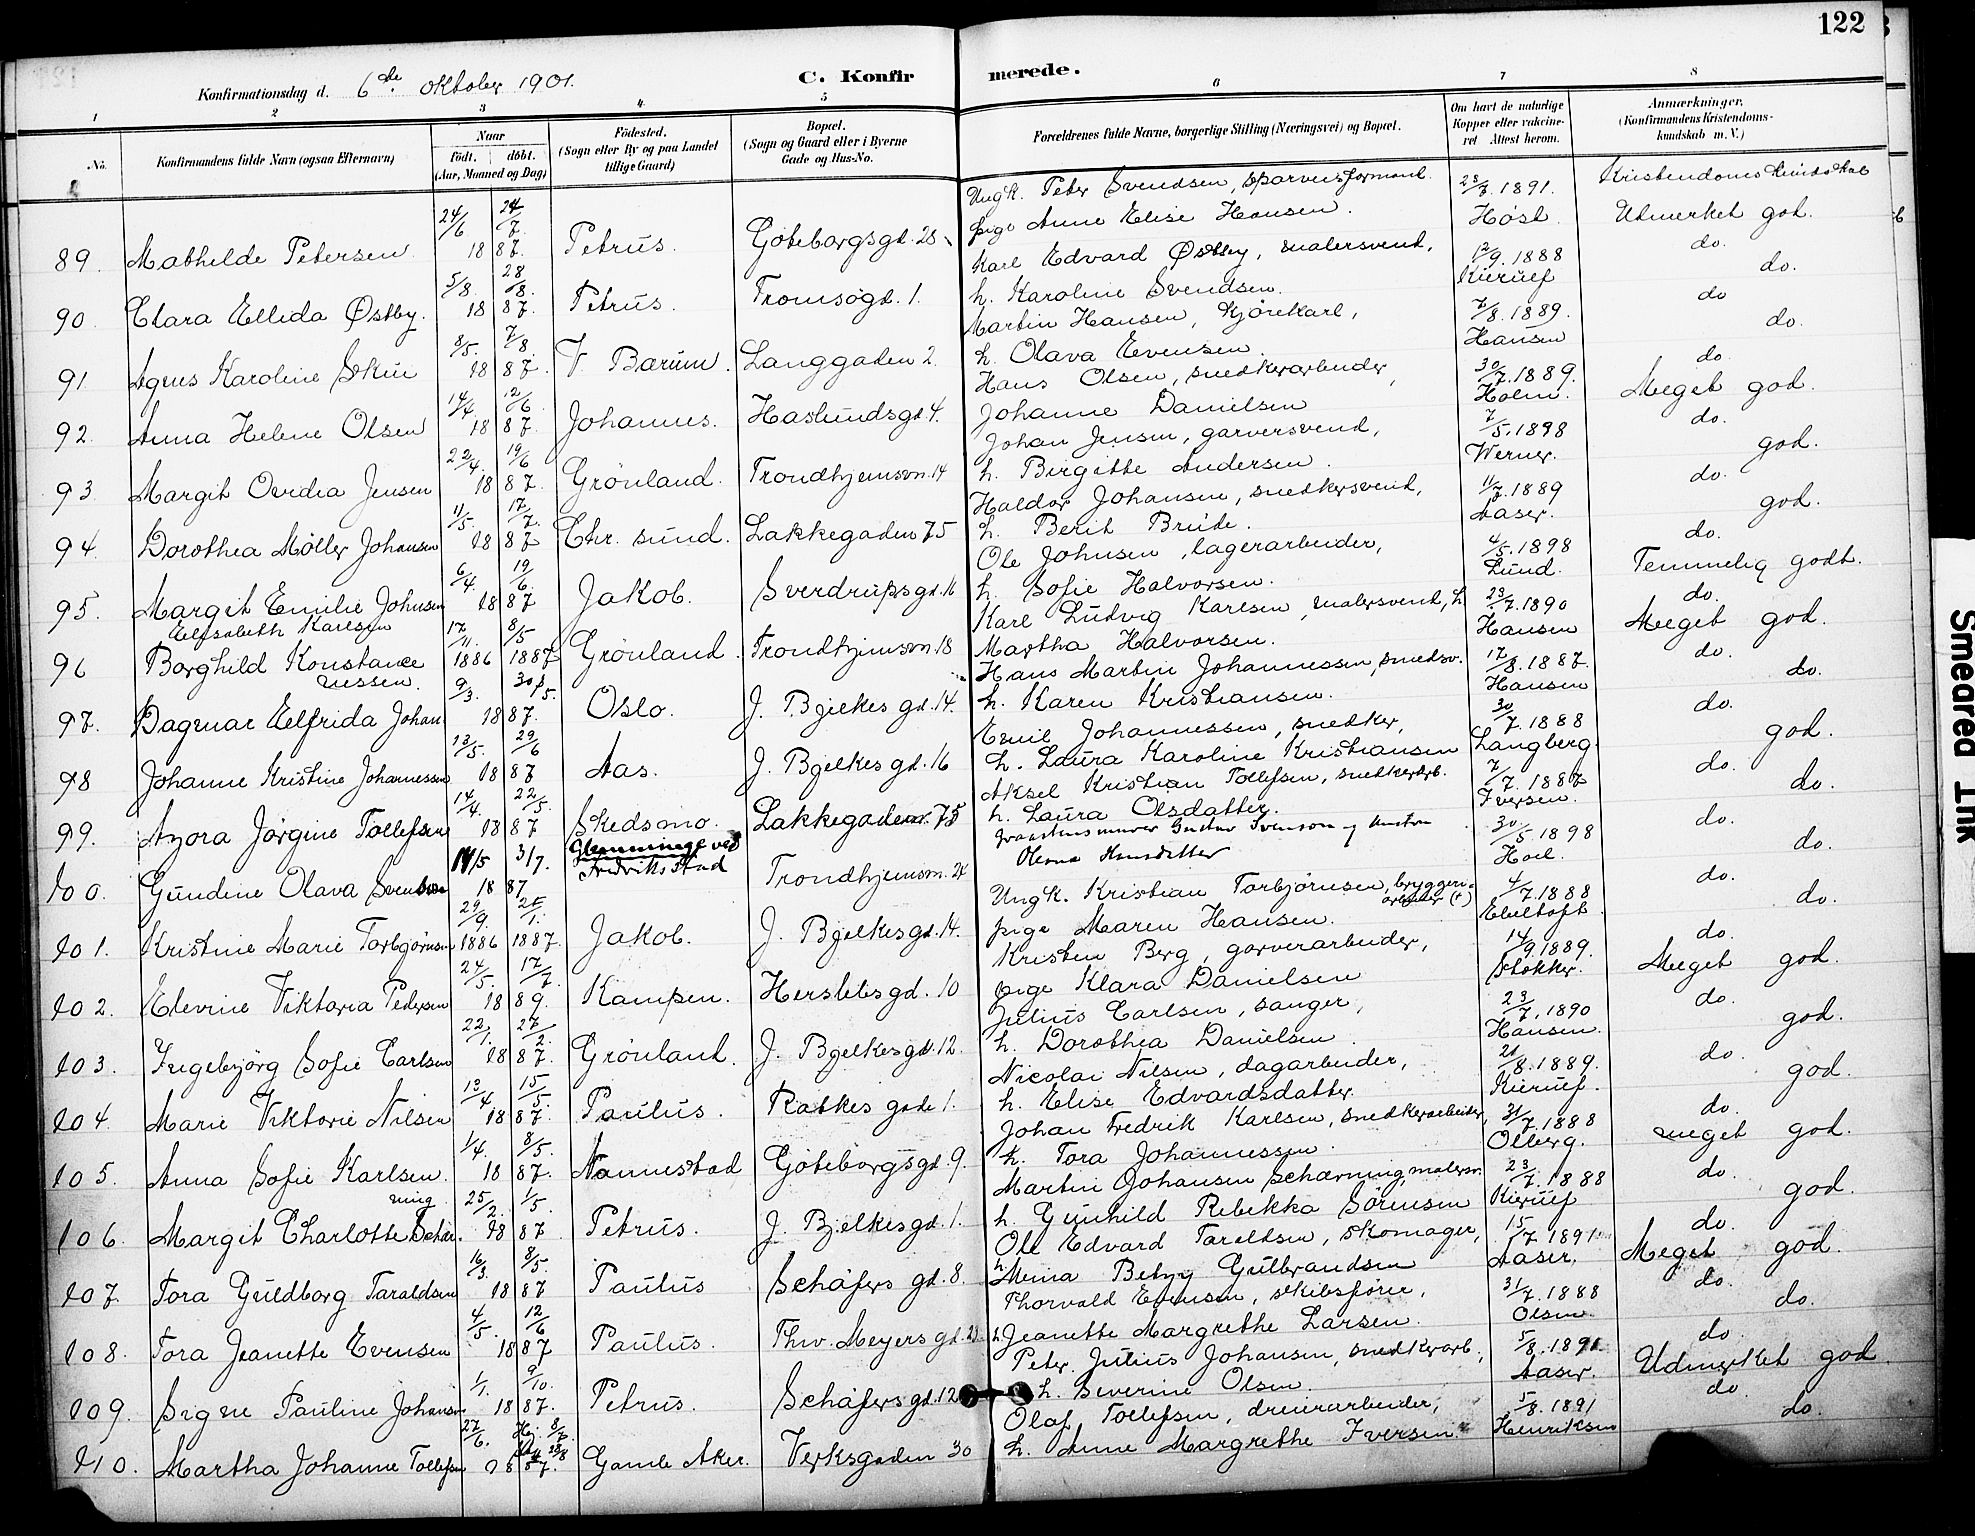 122
Konfirmationsdag d. 6te Oktober 1901.
C. Konfirmerede.
1 2 3 4. 5 6 7 8
No.
Konfirmandens fulde Navn (ogsaa Efternavn)
Naar
født. døbt.
(Aar, Maaned og Dag)
Fødested.
(Sogn eller By og paa Landet
tillige Gaard)
Bopæl.
(Sogn og Gaard eller i Byerne
Gade og Hus-No.
Forældrenes fulde Navne, borgerlige Stilling (Næringsvei) og Bopæl.
Om havt de naturlige
Kopper eller vakcine-
ret Attest herom.
Anmærkninger.
(Konfirmandens Kristendoms-
kundskab m. V.)
89. Mathilde Petersen 24/6 24/7 18 87. Petrus. Göteborgsgd. 28 Ungk. Peter Svendsen, sporveisformand. pige Anne Elise Hansen. 1891. Høst. Kristendomskundskab Udmerket god.
90. Clara Ellida Østby. 5/8. 28/8. 18 87. Petrus. Tromsøgd. 1. Karl Edvard Østby, malersvend, h. Karoline Svendsen. 12/9. 1888 Kierulf do. do.
91. Agnes Karoline 8/5. 7/8. 18 87. V. Bærum. Langgaden 2 Martin Hansen, kjørekarl, h. Olava Evensen. 7/8. 1889. Hansen do do.
92. Anna Helene Olsen 14/4. 12/6. 18 87. Johannes. Haslundsgd. 4. Hans Olsen, snedkerarbeider, Johanne Danielsen 30/7. 1889. Holm. do. Meget god.
93. Margit Ovidia Jensen 22/4. 19/6 18 87. Grönland. Trondhjemsvn. 14 Johan Jensen, garversvend, h. Birgitte Andersen. 7/5. 1898 Werner. do. god.
94. Dorothea Møller Johansen 11/5. 17/7. 18 87 Chr. sund. Lakkegaden 75 Haldor Johansen, snedkersvend, h. Berit Brude. 11/7. 1889 Aaser. do. god.
95. Margit Emilie Johnsen 6/4. 19/6. 18 87 Jakob. Sverdrupsgd. 16 Ole Johnsen, lagerarbeider, h. Sofie Halvorsen. 4/5. 1898 Lund. do. Temmelig godt.
96 Borghild Konstance Elisabeth Karlsen 17/11. 8/5 1886 1887 Grönland. Trondhjemsvn. 18 Karl Ludvig Karlsen, malersvend, h. Martha Halvorsen. 23/7. 1890 Hansen do. Meget god.
97. Dagmar Elfrida Johannessen. 9/3. 30/5. 18 87. Oslo. J. Bjelkes gd. 14. Hans Martin Johannessen, smedsv. h. Karen Kristiansen. 17/8. 1887. Hansen do. do.
98 Johanne Kristine Johannessen 13/5. 29/6 18 87 Aas. J. Bjelkes gd. 16 Emil Johannessen, snedker, h. Laura Karoline Kristiansen 30/7. 1888 Langberg. do. god.
99. Azora Jørgine Tollefsen 14/4. 22/5. 18 87 Skedsmo. Lakkegaden 75 Aksel Kristian Tollefsen, snedkerarb. h. Laura Olsdatter. 7/7. 1887 Iversen. do. do.
100. Gundine Olava Svendsen 14/5 3/7. 18 87 Glemminge ved Fredrikstad Trondhjemsvn. 24 Gustav Svenson Hansdatter 30/5. 1898 Hoel. do. do.
101. Kristine Marie Torbjørnsen 29/9. 1886 1887. Jakob. J. Bjelkesgd. 14. Ungk. Kristian Torbjørnsen, bryggeriarbeider (†) pige Maren Hansen. 4/7. 1888 Ebeltoft. do. do.
102. Elevine Viktoria Pedersen 24/5. 17/7. 18 89. Kampen. Herslebsgd. 10 Kristen Berg, garverarbeider, pige Klara Danielsen 14/9. 1889. Stokker. do. Meget god.
103. Ingebjörg Sofie Carlsen 22/1. 27/2. 18 87. Grönland. J. Bjelkesgd. 12. Julius Carlsen, sanger, h. Dorothea Danielsen. 23/7. 1890 Hansen. do. god.
104. Marie Viktorie Nilsen 13/4 15/5. 18 87. Paulus. Ratkes gade 1. Nicolai Nilsen, dagarbeider, h. Elise Edvardsdatter. 21/8. 1889. Kierulf. do. god.
105. Anna Sofie Karlsen. 1/4. 8/5. 18 87. Nannestad Göteborgsgd. 9. Johan Fredrik Karlsen, snedkerarbeider, h. Tora Johannessen. 31/7. 1888 Olberg. do. meget god.
106. Margit Charlotte Schærning 25/2. 1/5. 18 87 Petrus. J. Bjelkesgd. 1. Martin Johansen Schærning, malersv. h. Gunhild Rebekka Sörensen 23/7. 1888 Kierulf do. god.
107. Tora Guldborg Taraldsen 16/3. 8/5. 18 87 Paulus Schäfers gd. 8. Ole Edvard Taraldsen, skomager, h. Mina Betzy Gulbrandsen 15/7. 1891. Aaser. do. Meget god.
108. Tora Jeanette Evensen 4/5. 12/6 18 87 Paulus. Thv. Meyers gd. Thorvald Evensen, skibsfører, h. Jeanette Margrethe Larsen. 31/7. 1888 Olsen. do. do.
109. Signe Pauline Johansen 1/1. 9/10. 18 87. Petrus. Schäfersgd. 12 Peter Julius Johansen, snedkerarb., h. Severine Olsen 5/8. 1891 Aaser. do. Udmerket god.
110. Martha Johanne Tollefsen 27/6. Hj. 8/7. 18 87. Gamle Aker. Verksgaden 30 Olaf Tollefsen, dreierarbeider, h. Anne Margrethe Iversen. 5/8. 1891 Henriksen do. do.
Smeared Ink